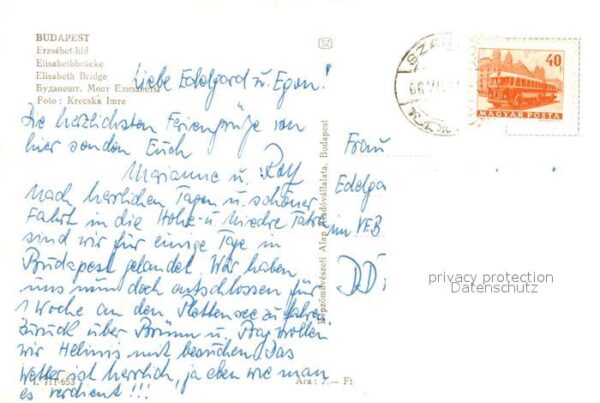 BUDAPEST
Erzsébet-híd
Elisabethbrücke
Elisabeth Bridge
Будапешт. Мост Елизабеты
Foto: Krecska Imre
Liebe Edelgard u. Egon!
Die herzlichsten Feriengrüße von
hier senden Euch
Marianne u. Rolf
Nach herrlichen Tagen u. schöner
Fahrt in die Hohe- u. Niedre Tatra
sind wir für einige Tage in
Budapest gelandet. Wir haben
uns nun doch entschlossen für
1 Woche an den Plattensee zu fahren.
Zurück über Brünn u. Prag wollen
wir Helmis mit besuchen. Das
Wetter ist herrlich, ja eben wie man
es verdient!!!
Ara: 2.- Ft
Képzőművészeti Alap Kiadóvállalata, Budapest
40 f
MAGYAR POSTA
Frau
Edelga
im VEB
DD
privacy protection
Datenschutz